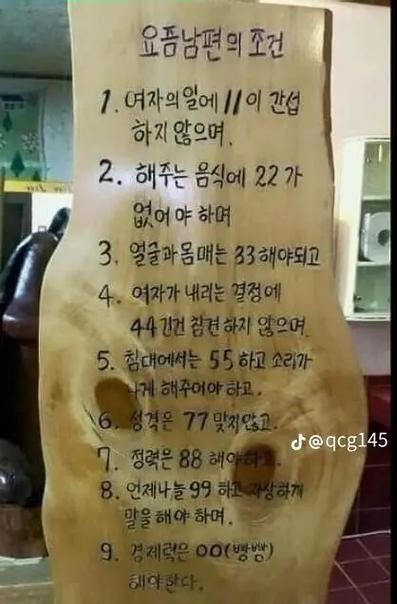 요즘남편의 조건
1. 여자의일에 11이 간섭
하지 않으며.
2. 해주는 음식에 22가
없어야 하며
3. 얼굴과몸매는 33해야되고
4. 여자가 내리는 결정에
44건건 참견하지 않으며.
5. 침대에서는 55하고 소리가
나게 해주어야하고.
6. 성격은 77맞지않고.
7. 정력은 88해야하고.
8. 언제나늘99하고 자상하게
말을해야하며.
9. 경제력은 00(빵빵)
해야한다.
@qcg145